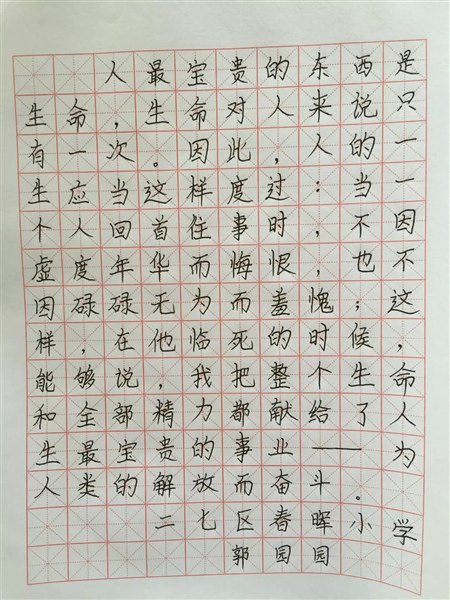 人最宝贵的东西是
生命，生命对人来说只
有一次。因此，人的一
生应当这样度过：当一
个人回首住事时，不因
虚度年华而悔恨，也不
因碌碌无为而羞愧；这
样，在他临死的时候，
能够说，我把整个生命
和全部精力都献给了人
生最宝贵的事业——为
人类的解放而奋斗。
二七区春晖小学
郭园园